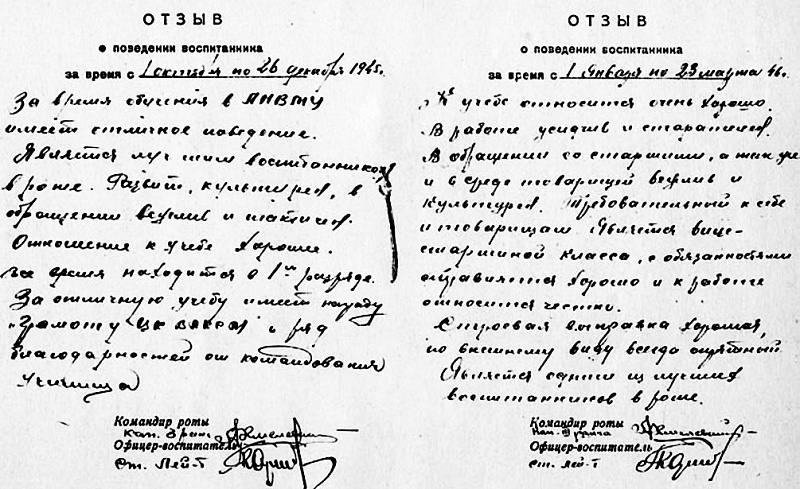 ОТЗЫВ
о поведении воспитанника
за время с 1 октября по 26 декабря 1945г.
За время обучения в ЛНВМУ
имеет отличное поведение.
Является лучшим воспитанником
в роте. Развит, культурен, в
обращении вежлив и тактичен.
Отношение к учебе хорошее.
время находится в 1м разряде.
За отличную учебу имеет награду
"Грамоту ЦК ВЛКСМ" и ряд
благодарностей от командования
Училища
Командир роты
Кап.
Офицер-воспитатель
Ст. Лей-т
ОТЗЫВ
о поведении воспитанника
за время с 1 Января по 23 марта 46г.
К учебе относится очень хорошо.
В работе усидчив и старателен.
В обращении со старшими, а так же
и в среде товарищей вежлив и
культурен. Требовательный к себе
и товарищам. Является вице-
старшиной класса, с обязанностями
справляется хорошо и к работе
относится честно.
Строевая выправка хорошая,
по внешнему виду всегда опрятный.
Является одним из лучших
воспитанников в роте.
Командир роты
Кап.
Офицер-воспитатель
Ст. Лей-т